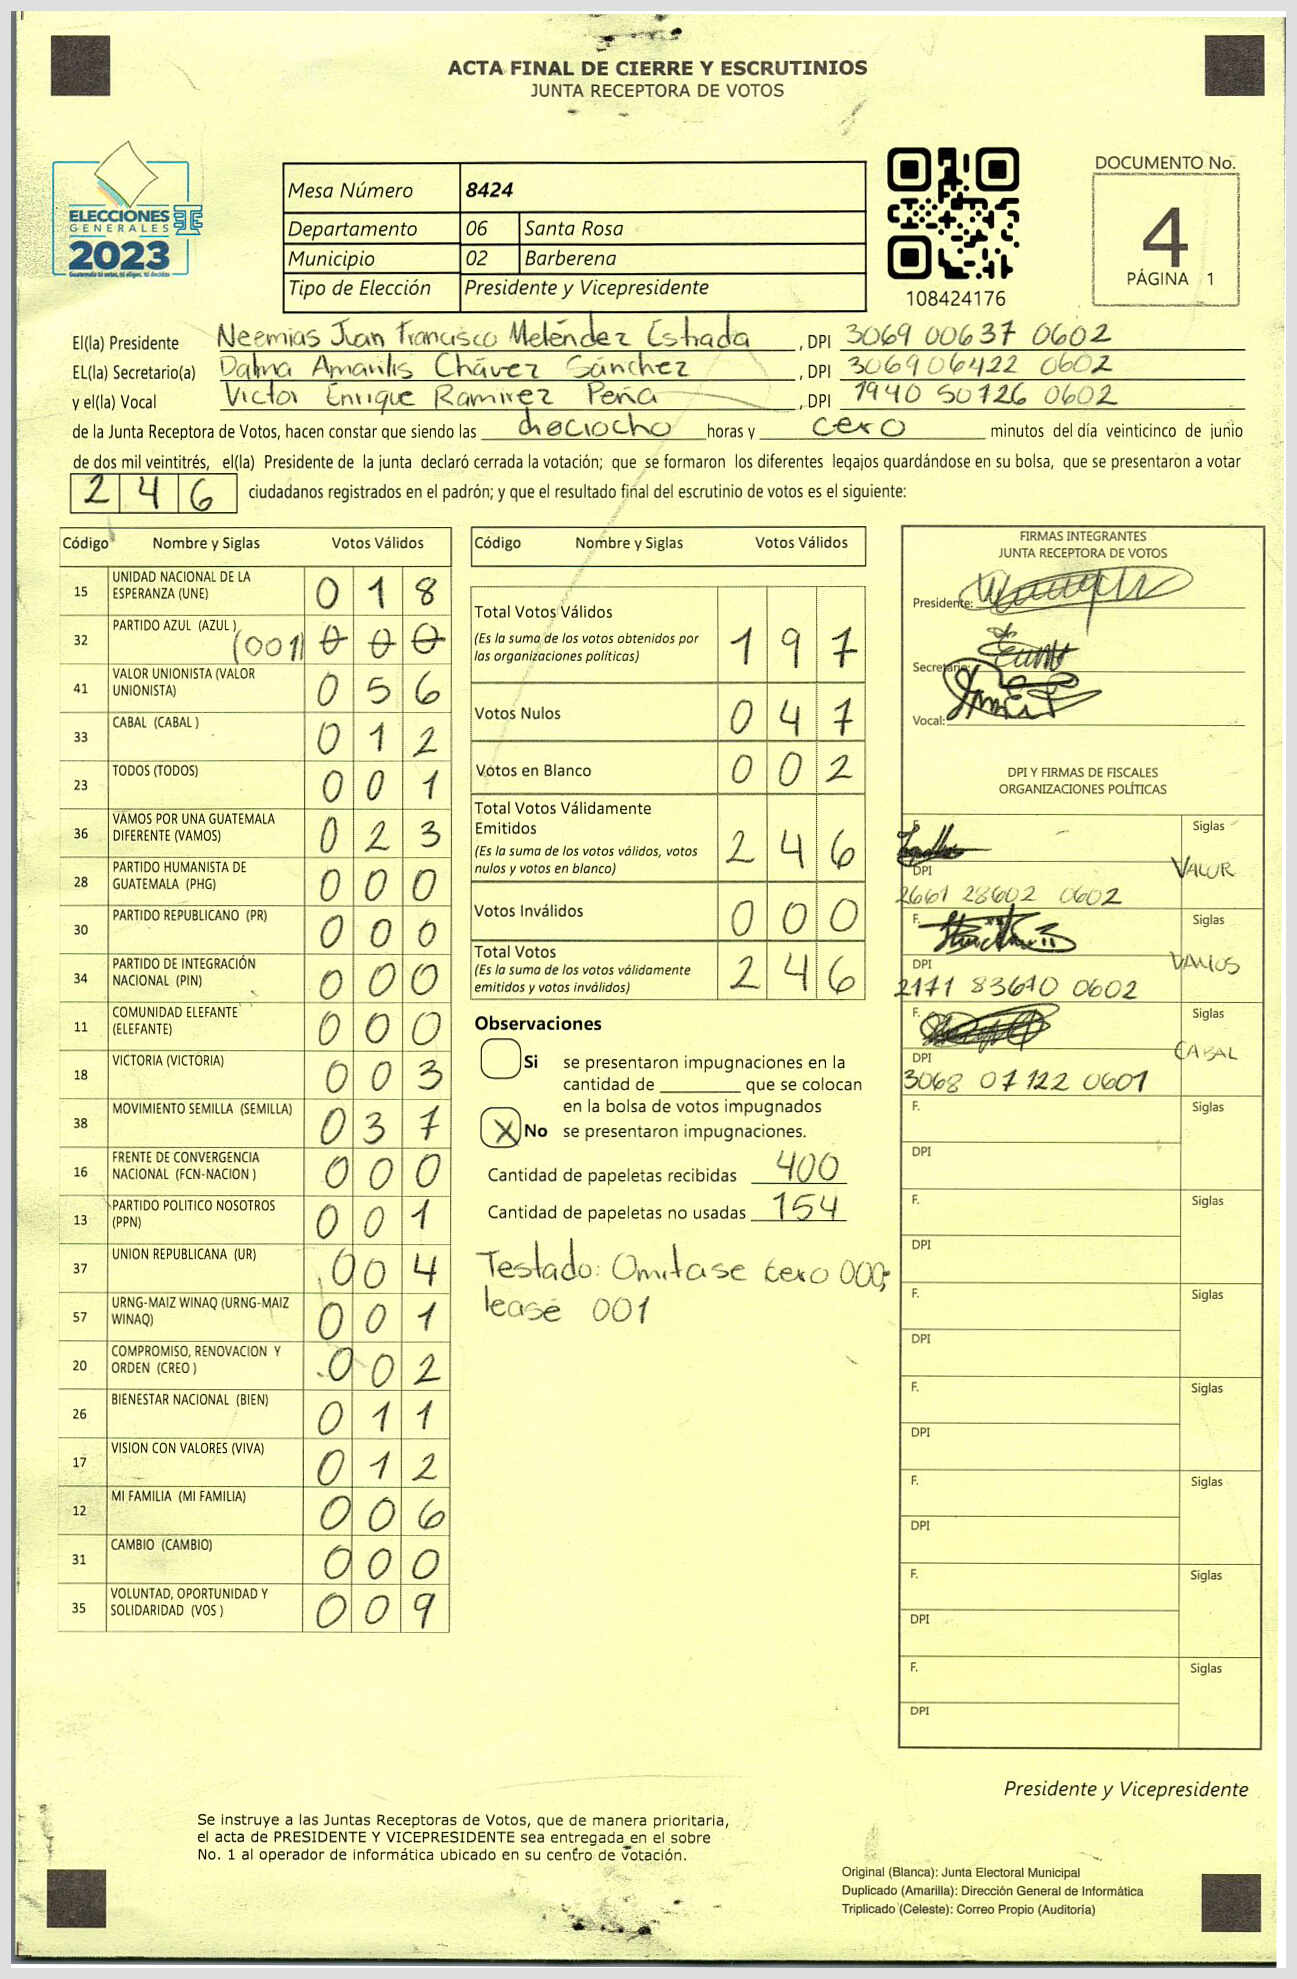 ACTA FINAL DE CIERRE Y ESCRUTINIOS
JUNTA RECEPTORA DE VOTOS
ELECCIONES
GENERALES
2023
Guatemala tú votas, tú eliges, tú decides
Mesa Número 8424
Departamento 06 Santa Rosa
Municipio 02 Barberena
Tipo de Elección Presidente y Vicepresidente
108424176
DOCUMENTO No.
4
PÁGINA 1
El(la) Presidente Neemias Juan Francisco Meléndez Estrada, DPI 3069 00637 0602
EL(la) Secretario(a) Dalma Amarilis Chávez Sánchez, DPI 3069 06422 0602
y el(la) Vocal Victor Enrique Ramirez Peña, DPI 1940 50726 0602
de la Junta Receptora de Votos, hacen constar que siendo las dieciocho horas y cero minutos del día veinticinco de junio
de dos mil veintitrés, el(la) Presidente de la junta declaró cerrada la votación; que se formaron los diferentes legajos guardándose en su bolsa, que se presentaron a votar
246 ciudadanos registrados en el padrón; y que el resultado final del escrutinio de votos es el siguiente:
Código Nombre y Siglas Votos Válidos
15 UNIDAD NACIONAL DE LA ESPERANZA (UNE) 018
32 PARTIDO AZUL (AZUL ) (001) 000
41 VALOR UNIONISTA (VALOR UNIONISTA) 056
33 CABAL (CABAL ) 012
23 TODOS (TODOS) 001
36 VAMOS POR UNA GUATEMALA DIFERENTE (VAMOS) 023
28 PARTIDO HUMANISTA DE GUATEMALA (PHG) 000
30 PARTIDO REPUBLICANO (PR) 000
34 PARTIDO DE INTEGRACIÓN NACIONAL (PIN) 000
11 COMUNIDAD ELEFANTE (ELEFANTE) 000
18 VICTORIA (VICTORIA) 003
38 MOVIMIENTO SEMILLA (SEMILLA) 037
16 FRENTE DE CONVERGENCIA NACIONAL (FCN-NACION ) 000
13 PARTIDO POLITICO NOSOTROS (PPN) 001
37 UNION REPUBLICANA (UR) 004
57 URNG-MAIZ WINAQ (URNG-MAIZ WINAQ) 001
20 COMPROMISO, RENOVACION Y ORDEN (CREO ) 002
26 BIENESTAR NACIONAL (BIEN) 011
17 VISION CON VALORES (VIVA) 012
12 MI FAMILIA (MI FAMILIA) 006
31 CAMBIO (CAMBIO) 000
35 VOLUNTAD, OPORTUNIDAD Y SOLIDARIDAD (VOS ) 009
Código Nombre y Siglas Votos Válidos
Total Votos Válidos 197
(Es la suma de los votos obtenidos por
las organizaciones políticas)
Votos Nulos 047
Votos en Blanco 002
Total Votos Válidamente
Emitidos 246
(Es la suma de los votos válidos, votos
nulos y votos en blanco)
Votos Inválidos 000
Total Votos 246
(Es la suma de los votos válidamente
emitidos y votos inválidos)
Observaciones
Si se presentaron impugnaciones en la
cantidad de ________ que se colocan
en la bolsa de votos impugnados
X No se presentaron impugnaciones.
Cantidad de papeletas recibidas 400
Cantidad de papeletas no usadas 154
Testado: Omitase cero 000;
lease 001
FIRMAS INTEGRANTES
JUNTA RECEPTORA DE VOTOS
Presidente:
Secretario:
Vocal:
DPI Y FIRMAS DE FISCALES
ORGANIZACIONES POLÍTICAS
F. Siglas
VALOR
DPI
2661 28602 0602
F. Siglas
VAMOS
DPI
2171 83610 0602
F. Siglas
CABAL
DPI
3068 07122 0601
F. Siglas
DPI
F. Siglas
DPI
F. Siglas
DPI
F. Siglas
DPI
F. Siglas
DPI
F. Siglas
DPI
F. Siglas
DPI
Presidente y Vicepresidente
Se instruye a las Juntas Receptoras de Votos, que de manera prioritaria,
el acta de PRESIDENTE Y VICEPRESIDENTE sea entregada en el sobre
No. 1 al operador de informática ubicado en su centro de votación.
Original (Blanca): Junta Electoral Municipal
Duplicado (Amarilla): Dirección General de Informática
Triplicado (Celeste): Correo Propio (Auditoría)